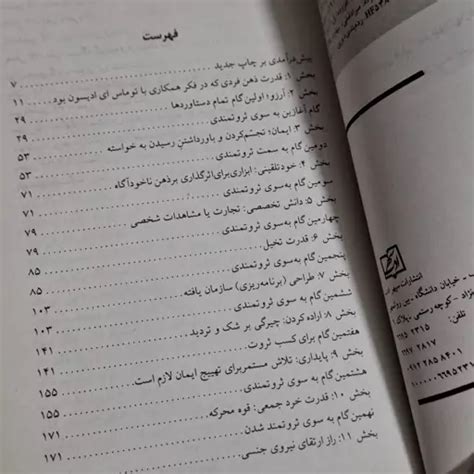 فهرست
پیش‌درآمدی بر چاپ جدید ۷
بخش ۱: قدرت ذهن فردی که در فکر همکاری با توماس ای ادیسون بود ۱۱
بخش ۲: آرزو؛ اولین گام تمام دستاوردها ۲۹
گام آغازین به سوی ثروتمندی ۲۹
بخش ۳: ایمان؛ تجسّم‌کردن و باورداشتنِ رسیدن به خواسته ۵۳
دومین گام به سمت ثروتمندی ۵۳
بخش ۴: خودتلقینی: ابزاری برای اثرگذاری برذهن ناخودآگاه ۷۱
سومین گام به‌سوی ثروتمندی ۷۱
بخش ۵: دانش تخصصی: تجارت یا مشاهدات شخصی ۷۹
چهارمین گام به‌سوی ثروتمندی ۷۹
بخش ۶: قدرت تخیل ۸۵
پنجمین گام به‌سوی ثروتمندی ۸۵
بخش ۷: طراحی (برنامه‌ریزی) سازمان یافته ۱۰۳
ششمین گام به سوی ثروتمندی ۱۰۳
بخش ۸: اراده کردن: چیرگی بر شک و تردید ۱۴۱
هفتمین گام برای کسب ثروت ۱۴۱
بخش ۹: پایداری: تلاش مستمربرای تهییج ایمان لازم است ۱۵۵
هشتمین گام به سوی ثروتمندی ۱۵۵
بخش ۱۰: قدرت خرد جمعی: قوه محرکه ۱۷۱
نهمین گام به سوی ثروتمند شدن ۱۷۱
بخش ۱۱: راز ارتقای نیروی جنسی
انتشارات
خیابان دانشگاه - بین
کوچه رستمی - پلاک